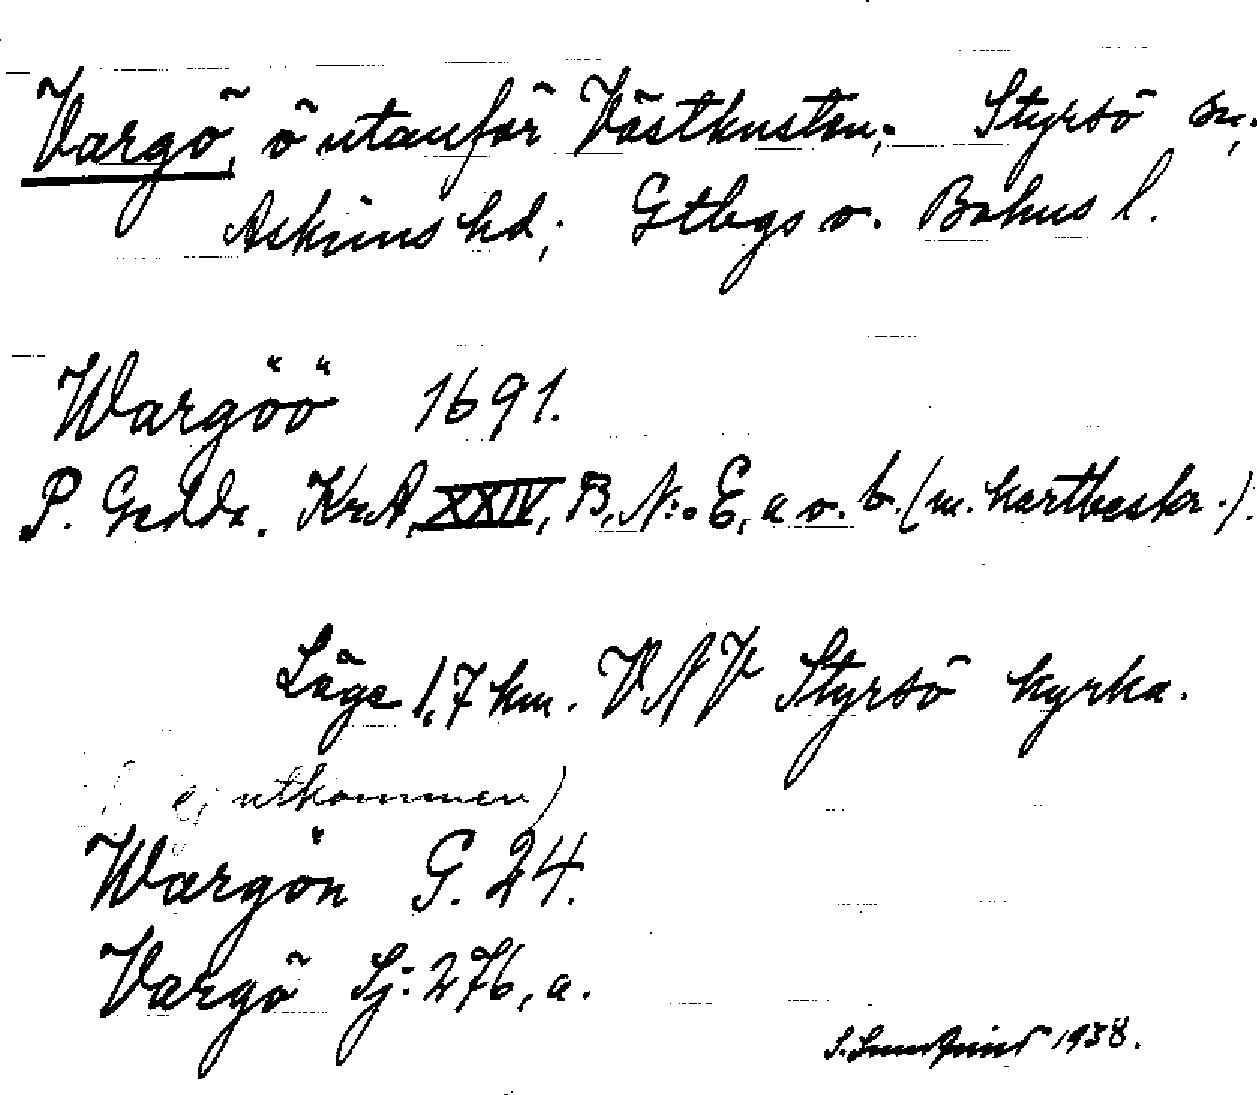 Vargö, ö utanför Västkusten; Styrsö sn,
Askims hd; Gtbgs o. Bohus l.
Wargöö 1691.
P. Gedda. KrA, XXIV, B, N:o E, a o. b. (m. kartbeskr.).
Läge 1,7 km. VNV Styrsö kyrka.
ej utkommen)
Wargön G. 24.
Vargö Sj: 276, a.
1938.